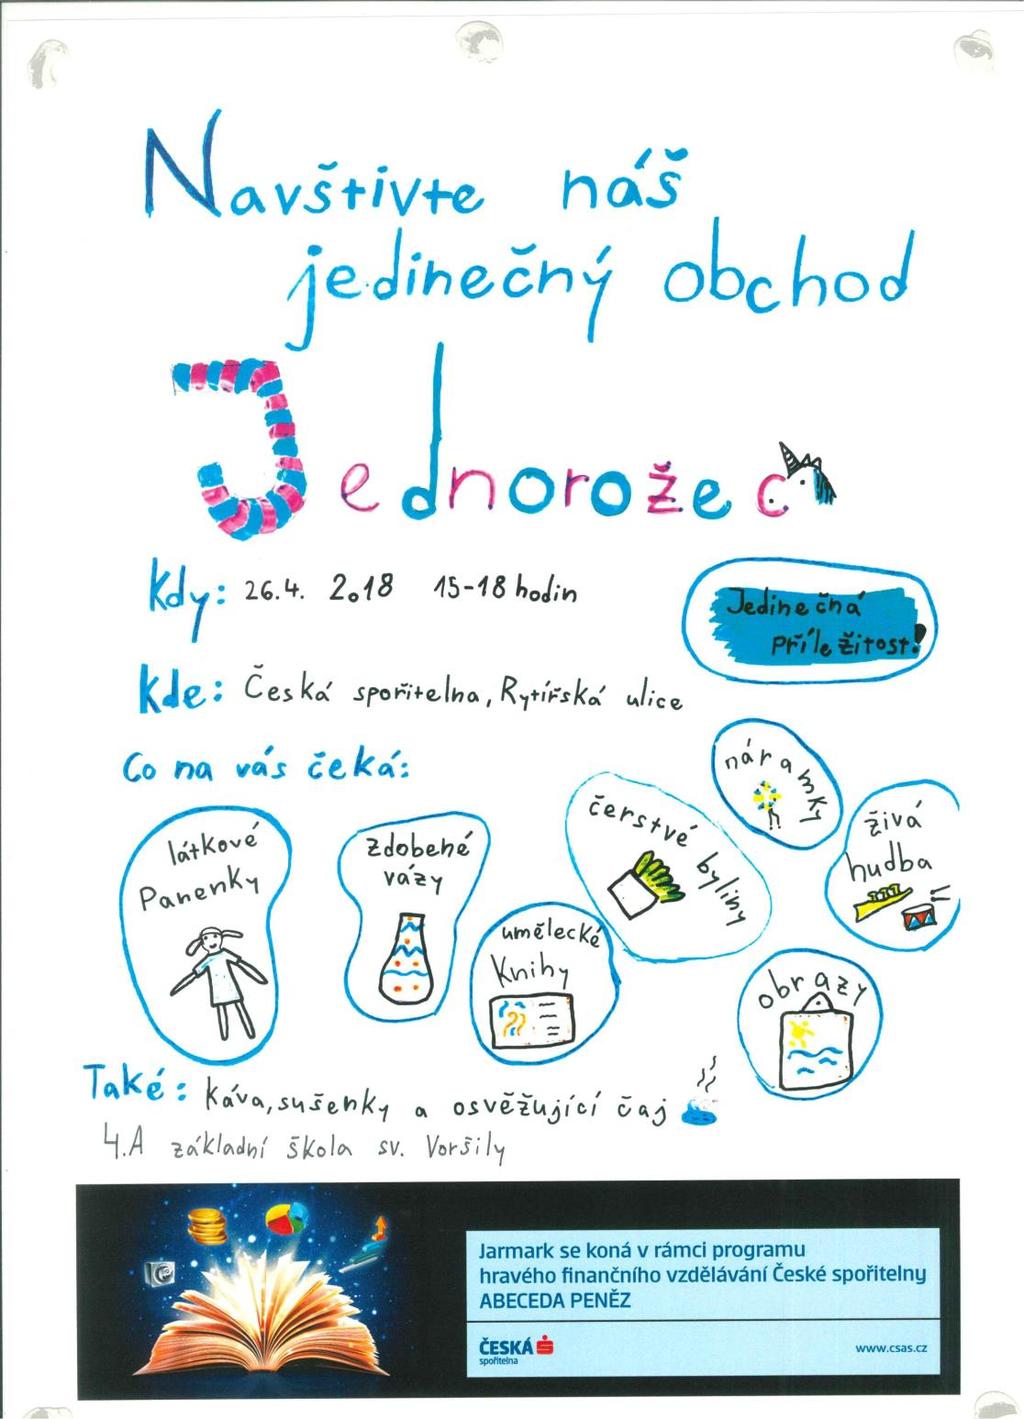 Navštivte náš
jedinečný obchod
Jednorožec
Kdy: 26.4. 2018 15-18 hodin
Jedinečná
příležitost!
Kde: Česká spořitelna, Rytířská ulice
Co na vás čeká:
látkové
Panenky
zdobené
vázy
umělecké
Knihy
čerstvé byliny
náramky
živá
hudba
obrazy
Také: káva, sušenky a osvěžující čaj
4.A základní škola sv. Voršily
Jarmark se koná v rámci programu
hravého finančního vzdělávání České spořitelny
ABECEDA PENĚZ
ČESKÁ
spořitelna
www.csas.cz